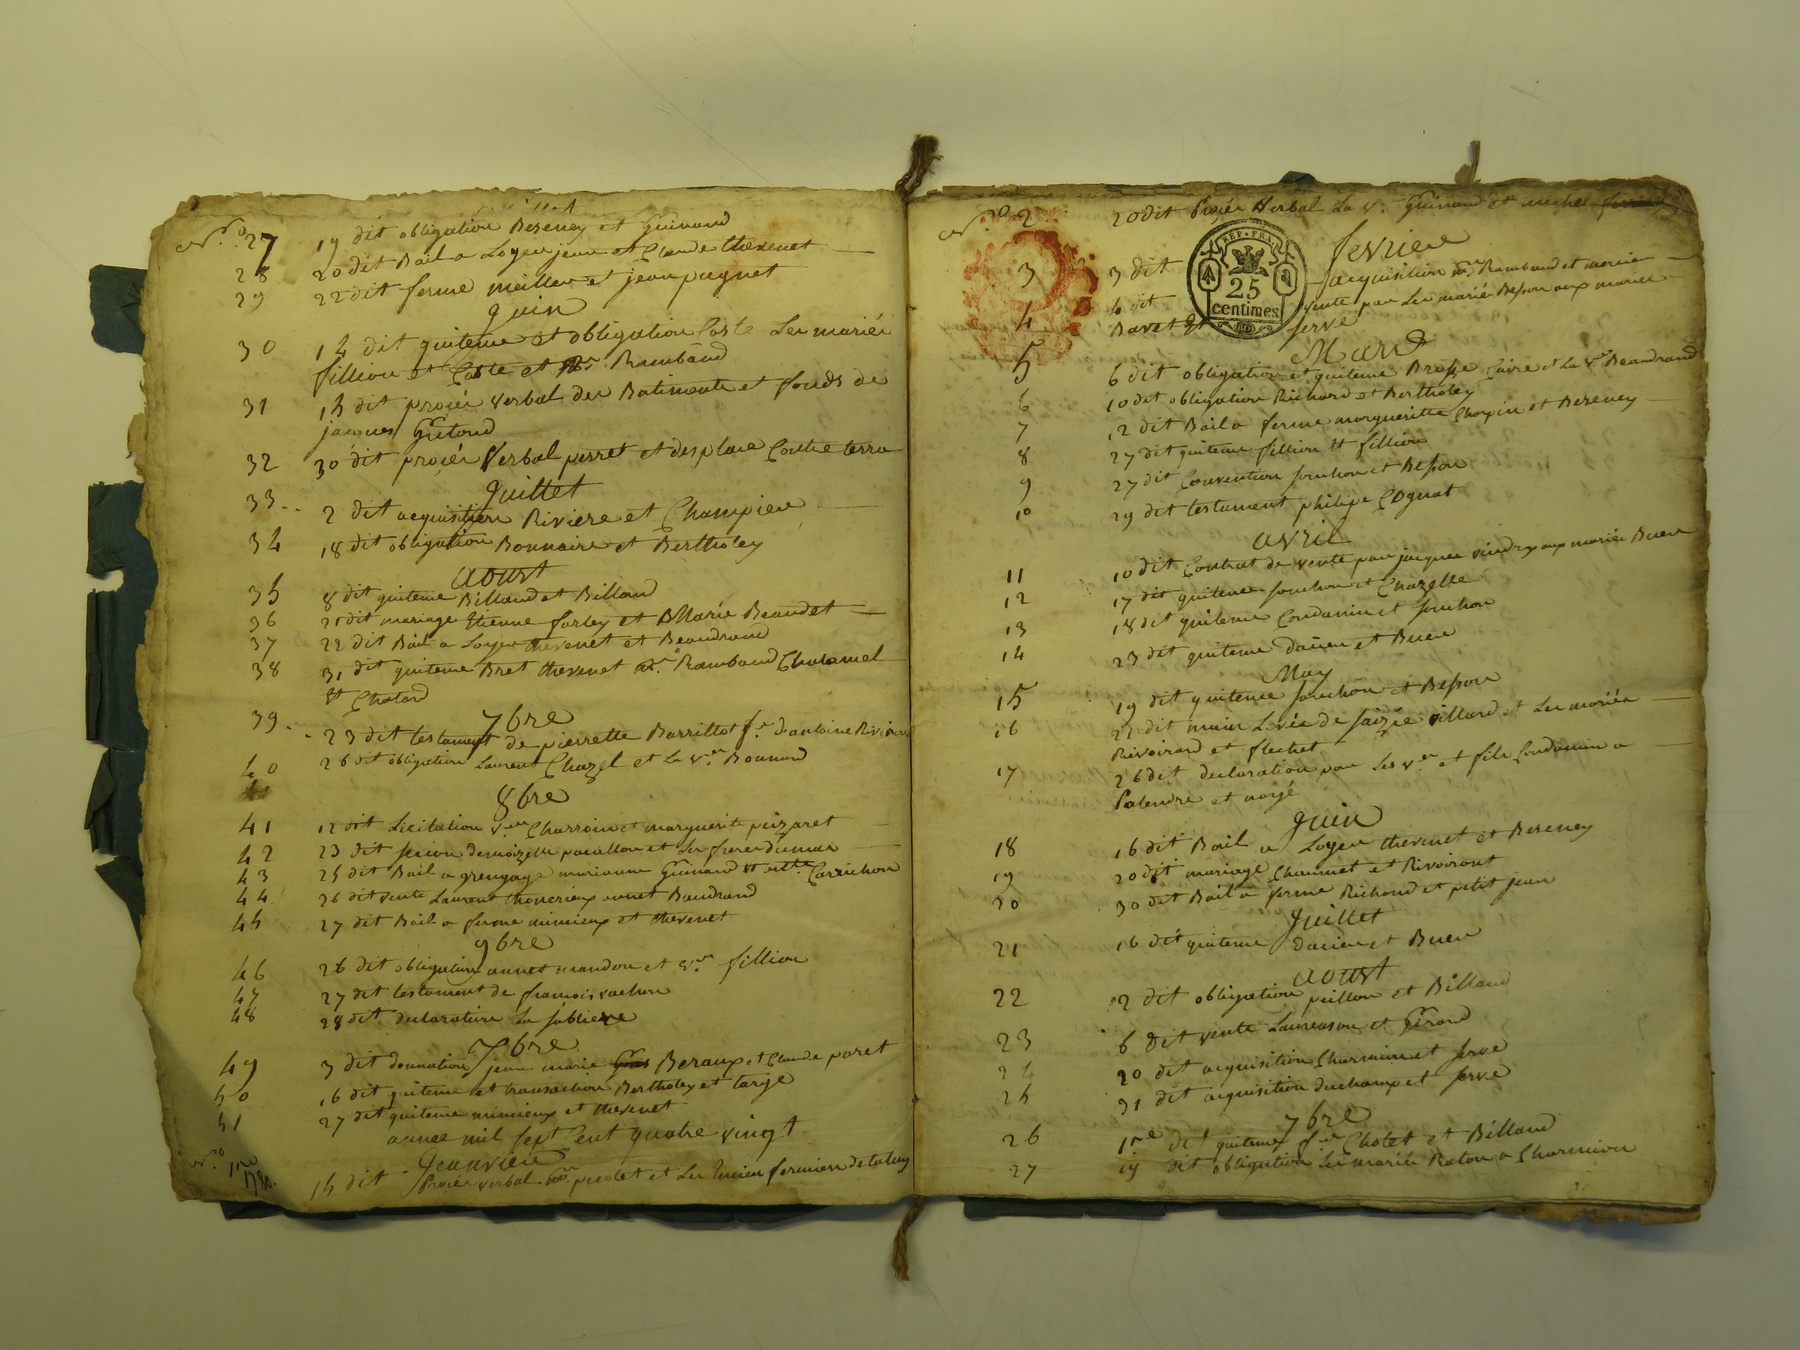 N.o 27 19 dit obligation Bezeney et Guinand
28 20 dit Bail a Loyer jean et Claude thevenet
29 22 dit ferme meiller et jean pugnet
juin
30 14 dit quitence et obligation Coste Les mariés
fillion et Coste et Rambaud
31 15 dit procés verbal des Batiments et fonds de
jacques Gretond
32 30 dit procés verbal perret et desplace Contre terra
juillet
33 2 dit acquisition Riviere et Champier
34 18 dit obligation Bonnaire et Bertholey
aoust
35 8 dit quitence Billaud et Billaud
36 21 dit mariage Etienne farley et Marie Beaudet
37 22 dit Bail a Loyer thevenet et Beaudrand
38 31 dit quitence Bret thevenet Rambaud Chalamel
et Chatard
7bre
39 23 dit testament de pierrette Barrillot f.e d'antoine Rivoiron
40 26 dit obligation Laurent Chazel et La v.e Bonnard
8bre
41 12 dit Licitation Charroin et marguerite puizaret
42 23 dit demoizelle pacallon et Ses freres dumas
43 25 dit Bail a grengage marianne Guinand et Carrichon
44 26 dit vente Laurent thonerieux annet Baudrand
45 27 dit Bail a ferme mimieux et thevenet
9bre
46 26 dit obligation annet mandon et fillion
47 27 dit testament de françois vachon
48 28 dit declarature La Sabliere
Xbre
49 3 dit donnation jean marie Beraux et Claude paret
50 16 dit quitence et transaction Bertholey et targe
51 27 dit quitence mimieux et thevenet
annee mil sept Cent quatre vingt
Jeanvier
N.o 1re 1780. 15 dit procés verbal picolet et Les fermiers de
N.o 2 20 dit Procés Verbal La v.e Guinand et michel
fevrier
3 3 dit acquisition Rambaud et mercier
REP. FRA.
25
centimes
4 4 dit vente par Les mariés Besson aux mariés
Bavet et serve
Mars
5 6 dit obligation et quitence Brosse Caire et La v.e Beaudrand
6 10 dit obligation Richard et Bertholey
7 12 dit Bail a ferme margueritte Chapin et Bezeney
8 27 dit quitence fillion et fillion
9 27 dit Convention souchon et Besson
10 29 dit testament philipe Cognat
avril
11 10 dit Contrat de vente par jacques vindry aux mariés Buer
12 17 dit quitence souchon et Chazelle
13 18 dit quitence Condamin et souchon
14 23 dit quitence dacier et Buer
May
15 19 dit quitence souchon et Besson
16 22 dit main Levée de saizie villard et Les mariés
Rivoirard et flechet
17 26 dit declaration par Les v.e et fils Condamin a
Palendre et noyé
juin
18 16 dit Bail a Loyer thevenet et Bezeney
19 20 dit mariage Chaumet et Rivoiront
20 30 dit Bail a ferme Richard et petit jean
juillet
21 16 dit quitence dacier et Buer
aoust
22 2 dit obligation peillon et Billaud
23 6 dit vente Laureason et Girard
24 20 dit acquisition Charmion et serve
25 31 dit acquisition duchamp et serve
7bre
26 1re dit quitence Cholet et Billaud
27 19 dit obligation Les mariés Raton a Charmion